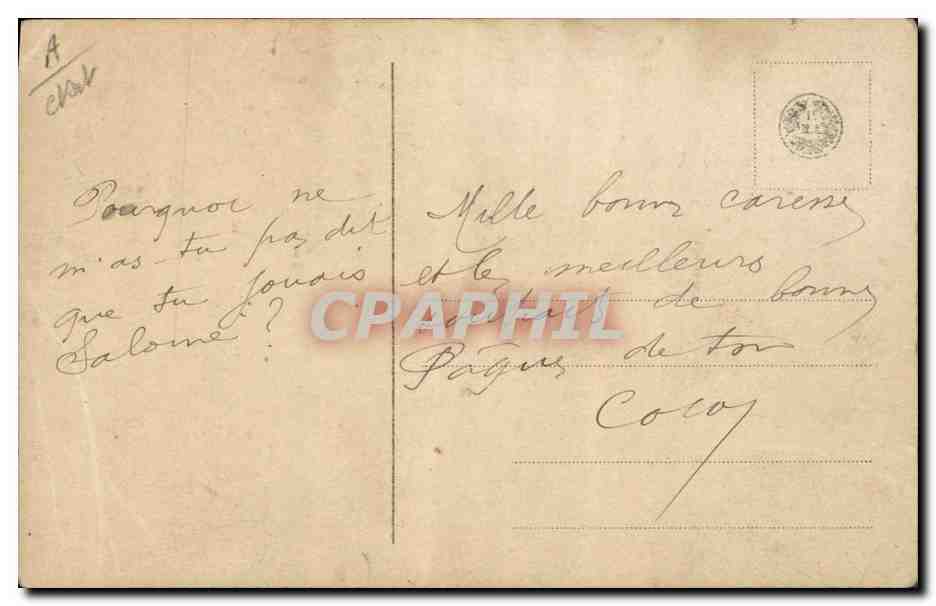 A
chat
Pourquoi ne
m'as-tu pas dit
que tu jouais
Salomé ?
Mille bonnes caresses
et les meilleurs
souhaits de bonnes
Pâques de ton
Coco
CPAPHIL